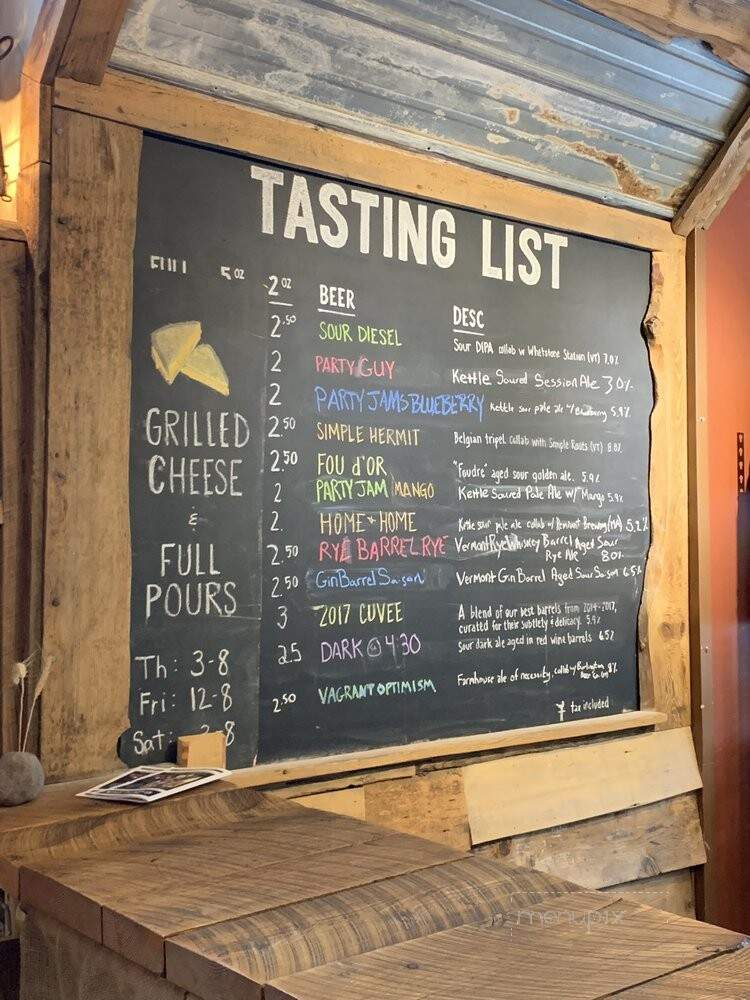 TASTING LIST
FULL 5 OZ 2 OZ BEER DESC
2.50 SOUR DIESEL Sour DIPA collab w Whetstone Station (VT) 7.0%
2 PARTY GUY Kettle Soured Session Ale 3.0%
2 PARTY JAMS BLUEBERRY kettle sour pale ale w/ 5.9%
2.50 SIMPLE HERMIT Belgian tripel collab with Simple Roots (VT) 8.8%
2.50 FOU d'OR "Foudre" aged sour golden ale. 5.9%
2 PARTY JAM MANGO Kettle Soured Pale Ale w/ Mango 5.9%
2. HOME + HOME Kettle sour pale ale collab w/ Brewing (MA) 5.2%
2.50 RYE BARREL RYE Vermont Rye Whiskey Barrel Aged Sour
Rye Ale 8.0%
2.50 Gin Barrel Saison Vermont Gin Barrel Aged Sour Saison 6.5%
3 2017 CUVEE A blend of our best barrels from 2014-2017,
curated for their subtlety & delicacy. 5.9%
2.5 DARK @ 4:30 sour dark ale aged in red wine barrels 6.5%
2.50 VAGRANT OPTIMISM Farmhouse ale of necessity, collab w/ Burlington
Beer Co. 8%
tax included
GRILLED
CHEESE
&
FULL
POURS
Th: 3-8
Fri: 12-8
Sat: 8
menupix